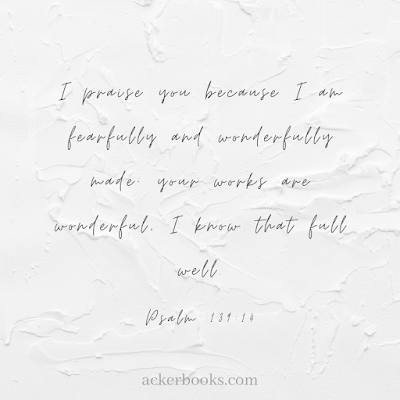 I praise you because I am
fearfully and wonderfully
made; your works are
wonderful, I know that full
well.
Psalm 139:14
ackerbooks.com